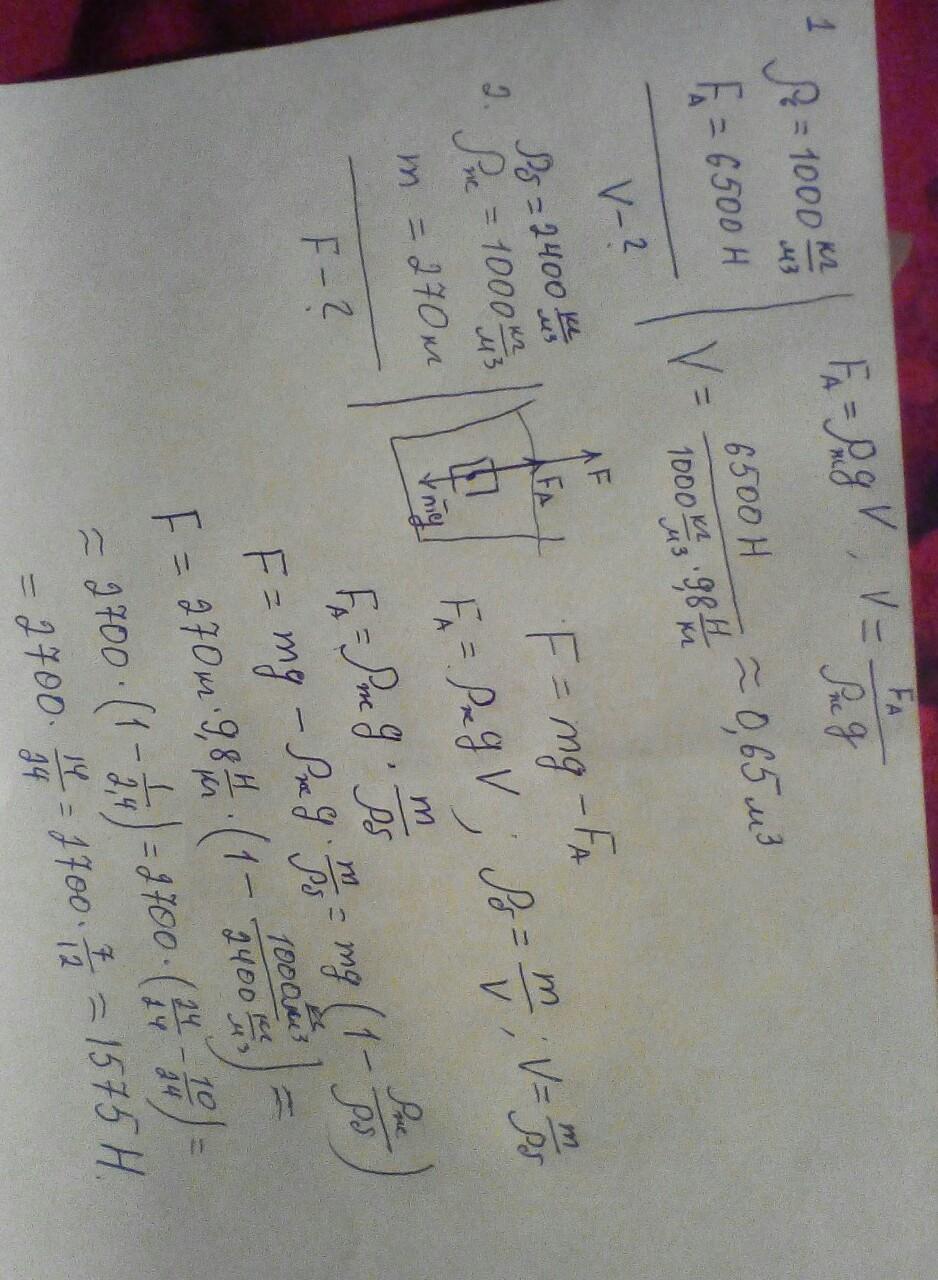 1
ρв = 1000 кг/м3
FA = 6500 Н
V - ?
FA = ρж g V, V = FA/ρж g
V = 6500 Н / 1000 кг/м3 · 9,8 Н/кг ≈ 0,65 м3
2.
ρб = 2400 кг/м3
ρж = 1000 кг/м3
m = 270 кг
F - ?
F
FA
mg
F = mg - FA
FA = ρж g V; ρб = m/V, V = m/ρб
FA = ρж g · m/ρб
F = mg - ρж g · m/ρб = mg (1 - ρж/ρб)
F = 270 кг · 9,8 Н/кг · (1 - 1000 кг/м3 / 2400 кг/м3) =
≈ 2700 · (1 - 1/2,4) = 2700 · (24/24 - 10/24) =
= 2700 · 14/24 = 2700 · 7/12 = 1575 Н.